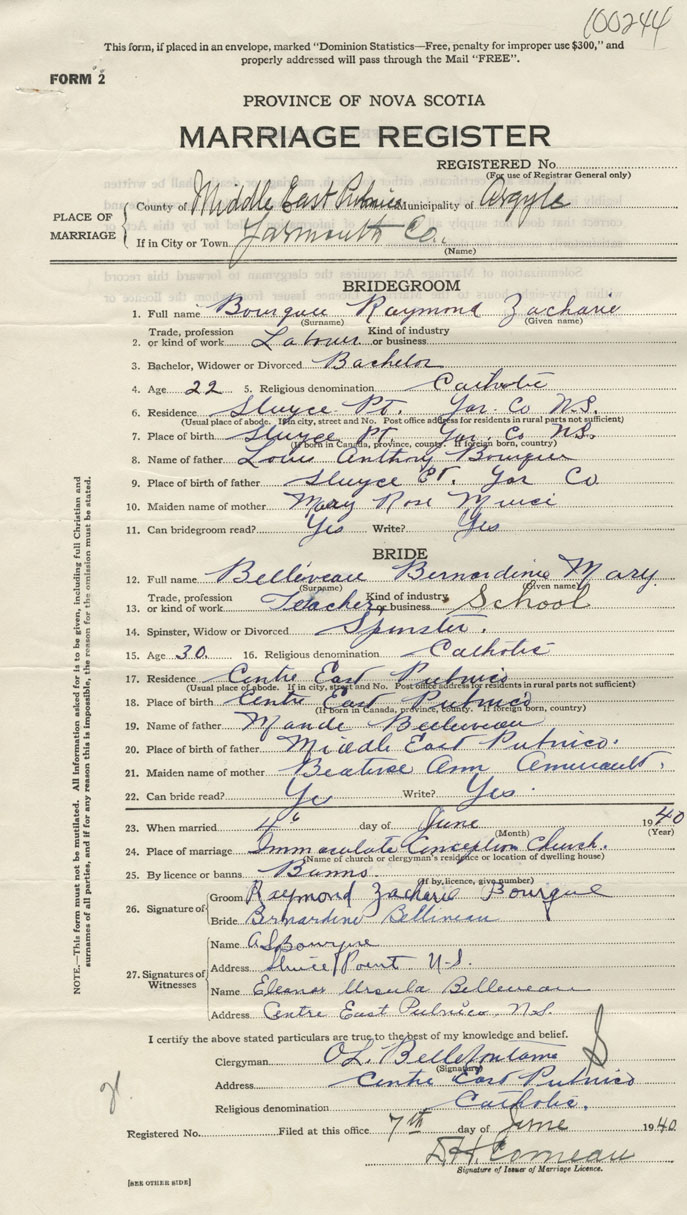 100244
This form, if placed in an envelope, marked "Dominion Statistics—Free, penalty for improper use $300," and
properly addressed will pass through the Mail "FREE".
FORM 2
PROVINCE OF NOVA SCOTIA
MARRIAGE REGISTER
REGISTERED No.
(For use of Registrar General only)
PLACE OF MARRIAGE
County of Middle East Pubnico Municipality of Argyle
If in City or Town Yarmouth Co.
(Name)
BRIDEGROOM
1. Full name Bourque Raymond Zacharie
(Surname) (Given name)
2. Trade, profession or kind of work Labour Kind of industry or business
3. Bachelor, Widower or Divorced Bachelor
4. Age 22 5. Religious denomination Catholic
6. Residence Sluyce Pt. Yar. Co N.S.
(Usual place of abode. If in city, street and No. Post office address for residents in rural parts not sufficient)
7. Place of birth Sluyce Pt. Yar. Co N.S.
(If born in Canada, province, county. If foreign born, country)
8. Name of father Louis Anthony Bourque
9. Place of birth of father Sluyce Pt. Yar Co
10. Maiden name of mother Mary Rose
11. Can bridegroom read? Yes Write? Yes
BRIDE
12. Full name Belliveau Bernardine Mary
(Surname) (Given name)
13. Trade, profession or kind of work Teacher Kind of industry or business School
14. Spinster, Widow or Divorced Spinster.
15. Age 30. 16. Religious denomination Catholic
17. Residence Centre East Pubnico
(Usual place of abode. If in city, street and No. Post office address for residents in rural parts not sufficient)
18. Place of birth Centre East Pubnico
(If born in Canada, province, county. If foreign born, country)
19. Name of father Mande Belliveau
20. Place of birth of father Middle East Pubnico.
21. Maiden name of mother Beatrise Ann Amirault.
22. Can bride read? Ye Write? Yes.
23. When married 4 day of June 1940
(Month) (Year)
24. Place of marriage Immaculate Conception Church.
(Name of church or clergyman's residence or location of dwelling house)
25. By licence or banns Banns
(If by licence, give number)
26. Signature of
Groom Raymond Zacharie Bourque
Bride Bernardine Belliveau
27. Signatures of Witnesses
Name A S Bourque
Address Sluice Point N.S.
Name Eleanor Ursula Belliveau
Address Centre East Pubnico, N.S.
I certify the above stated particulars are true to the best of my knowledge and belief.
Clergyman O L. Bellefontaine
(Signature)
Address Centre East Pubnico
Religious denomination Catholic.
Registered No. Filed at this office 7th day of June 1940
Comeau
Signature of Issuer of Marriage Licence.
[SEE OTHER SIDE]
NOTE.—This form must not be mutilated. All Information asked for is to be given, including full Christian and
surnames of all parties, and if for any reason this is impossible, the reason for the omission must be stated.